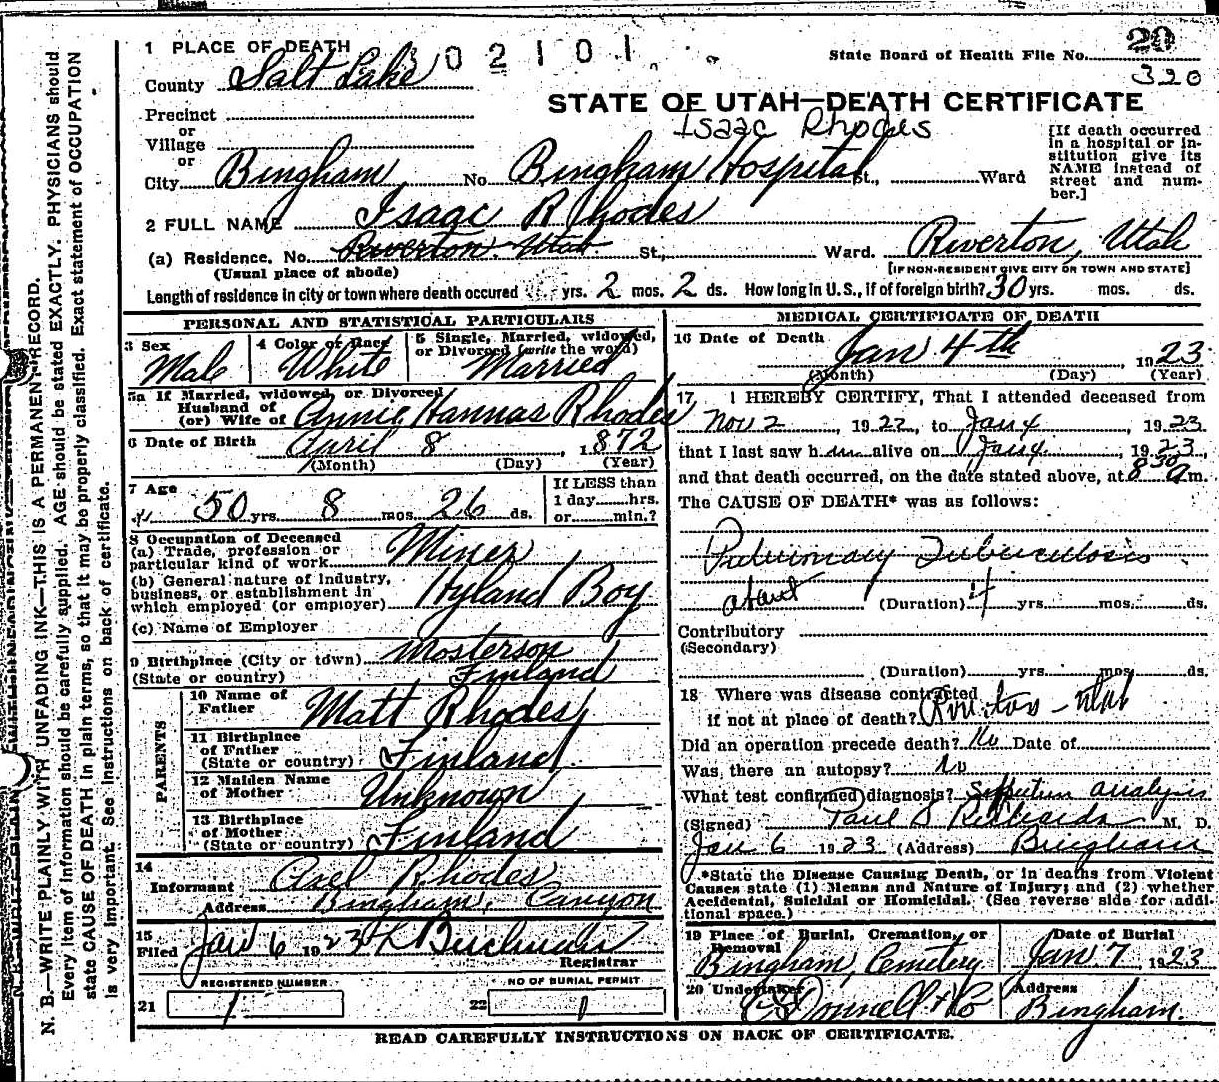 1 PLACE OF DEATH 302101
State Board of Health File No. 20
320
County Salt Lake
STATE OF UTAH—DEATH CERTIFICATE
Isaac Rhodes
Precinct
or
Village
or
City Bingham No. Bingham Hospital St., Ward
[If death occurred in a hospital or institution give its NAME instead of street and number.]
2 FULL NAME Isaac Rhodes
(a) Residence. No. Riverton. Utah. St., Ward. Riverton, Utah
(Usual place of abode) [IF NON-RESIDENT GIVE CITY OR TOWN AND STATE]
Length of residence in city or town where death occured yrs. 2 mos. 2 ds. How long in U. S., if of foreign birth? 30 yrs. mos. ds.
PERSONAL AND STATISTICAL PARTICULARS
3 Sex Male
4 Color or Race White
5 Single, Married, widowed, or Divorced (write the word) Married
5a If Married, widowed, or Divorced
Husband of
(or) Wife of Annie Hannas Rhodes
6 Date of Birth April 8, 1872
(Month) (Day) (Year)
7 Age 50 yrs. 8 mos. 26 ds.
If LESS than
1 day hrs.
or min.?
8 Occupation of Deceased
(a) Trade, profession or
particular kind of work Miner
(b) General nature of Industry,
business, or establishment in
which employed (or employer) Hyland Boy
(c) Name of Employer
9 Birthplace (City or town) Mosterson
(State or country) Finland
PARENTS
10 Name of
Father Matt Rhodes
11 Birthplace
of Father
(State or country) Finland
12 Maiden Name
of Mother Unknown
13 Birthplace
of Mother
(State or country) Finland
14
Informant Axel Rhodes
Address Bingham, Canyon
15
Filed Jan 6 1923 L Buchman
Registrar
REGISTERED NUMBER
21 1
NO OF BURIAL PERMIT
22 1
MEDICAL CERTIFICATE OF DEATH
16 Date of Death Jan 4th, 1923
(Month) (Day) (Year)
17, I HEREBY CERTIFY, That I attended deceased from
Nov 2, 1922, to Jan 4, 1923
that I last saw him alive on Jan 4, 1923,
and that death occurred, on the date stated above, at 8 30 a m.
The CAUSE OF DEATH* was as follows:
Pulmonary Tuberculosis
about (Duration) 4 yrs. mos. ds.
Contributory
(Secondary)
(Duration) yrs. mos. ds.
18 Where was disease contracted
if not at place of death? Riverton - Utah
Did an operation precede death? No Date of
Was there an autopsy? No
What test confirmed diagnosis? Sputum analysis
(Signed) Paul S Richards M. D.
Jan 6 1923 (Address) Bingham
*State the Disease Causing Death, or in deaths from Violent
Causes state (1) Means and Nature of Injury; and (2) whether
Accidental, Suicidal or Homicidal. (See reverse side for addi-
tional space.)
19 Place of Burial, Cremation, or
Removal Bingham, Cemetery
Date of Burial
Jan 7, 1923
20 Undertaker O'Donnell & Co
Address
Bingham.
READ CAREFULLY INSTRUCTIONS ON BACK OF CERTIFICATE.
N. B.—WRITE PLAINLY WITH UNFADING INK—THIS IS A PERMANENT RECORD.
Every item of Information should be carefully supplied. AGE should be stated EXACTLY. PHYSICIANS should
state CAUSE OF DEATH in plain terms, so that it may be properly classified. Exact statement of OCCUPATION
is very important. See Instructions on back of certificate.